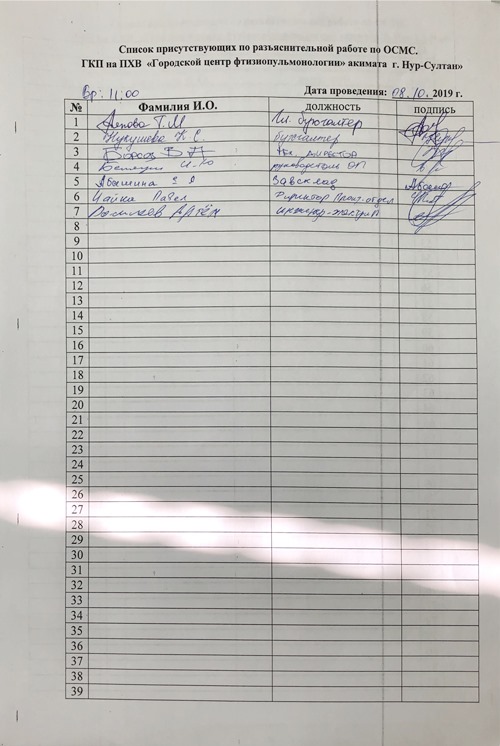 Список присутствующих по разъяснительной работе по ОСМС.
ГКП на ПХВ «Городской центр фтизиопульмонологии» акимата г. Нур-Султан»
Вр: 11:00 Дата проведения: 08.10. 2019 г.
№ Фамилия И.О. должность подпись
1 Т.М Гл. бухгалтер
2 К С бухгалтер
3 В А директора
4 руководитель ОП
5 Завсклад
6 Чайка Павел отдел
7 Артём инженер-электрик
8
9
10
11
12
13
14
15
16
17
18
19
20
21
22
23
24
25
26
27
28
29
30
31
32
33
34
35
36
37
38
39